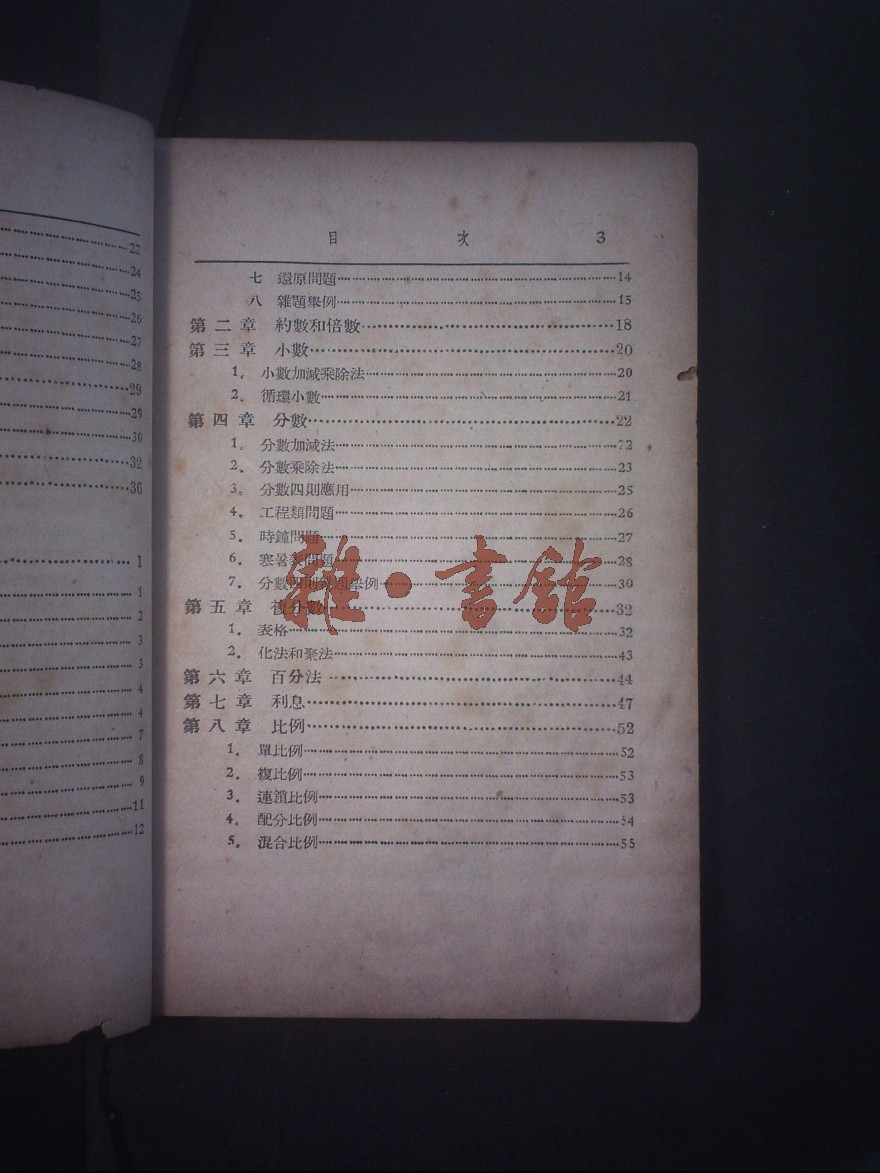 22
24
25
26
27
28
29
29
30
32
36
1
1
2
3
3
4
4
7
8
9
11
12
目 次 3
七 還原問題 14
八 雜題舉例 15
第二章 約數和倍數 18
第三章 小數 20
1. 小數加減乘除法 20
2. 循環小數 21
第四章 分數 22
1. 分數加減法 22
2. 分數乘除法 23
3. 分數四則應用 25
4. 工程類問題 26
5. 時鐘問題 27
6. 寒暑表問題 28
7. 分數四則雜題舉例 30
第五章 複分數 32
1. 表格 32
2. 化法和聚法 43
第六章 百分法 44
第七章 利息 47
第八章 比例 52
1. 單比例 52
2. 複比例 53
3. 連鎖比例 53
4. 配分比例 54
5. 混合比例 55
雜·書館